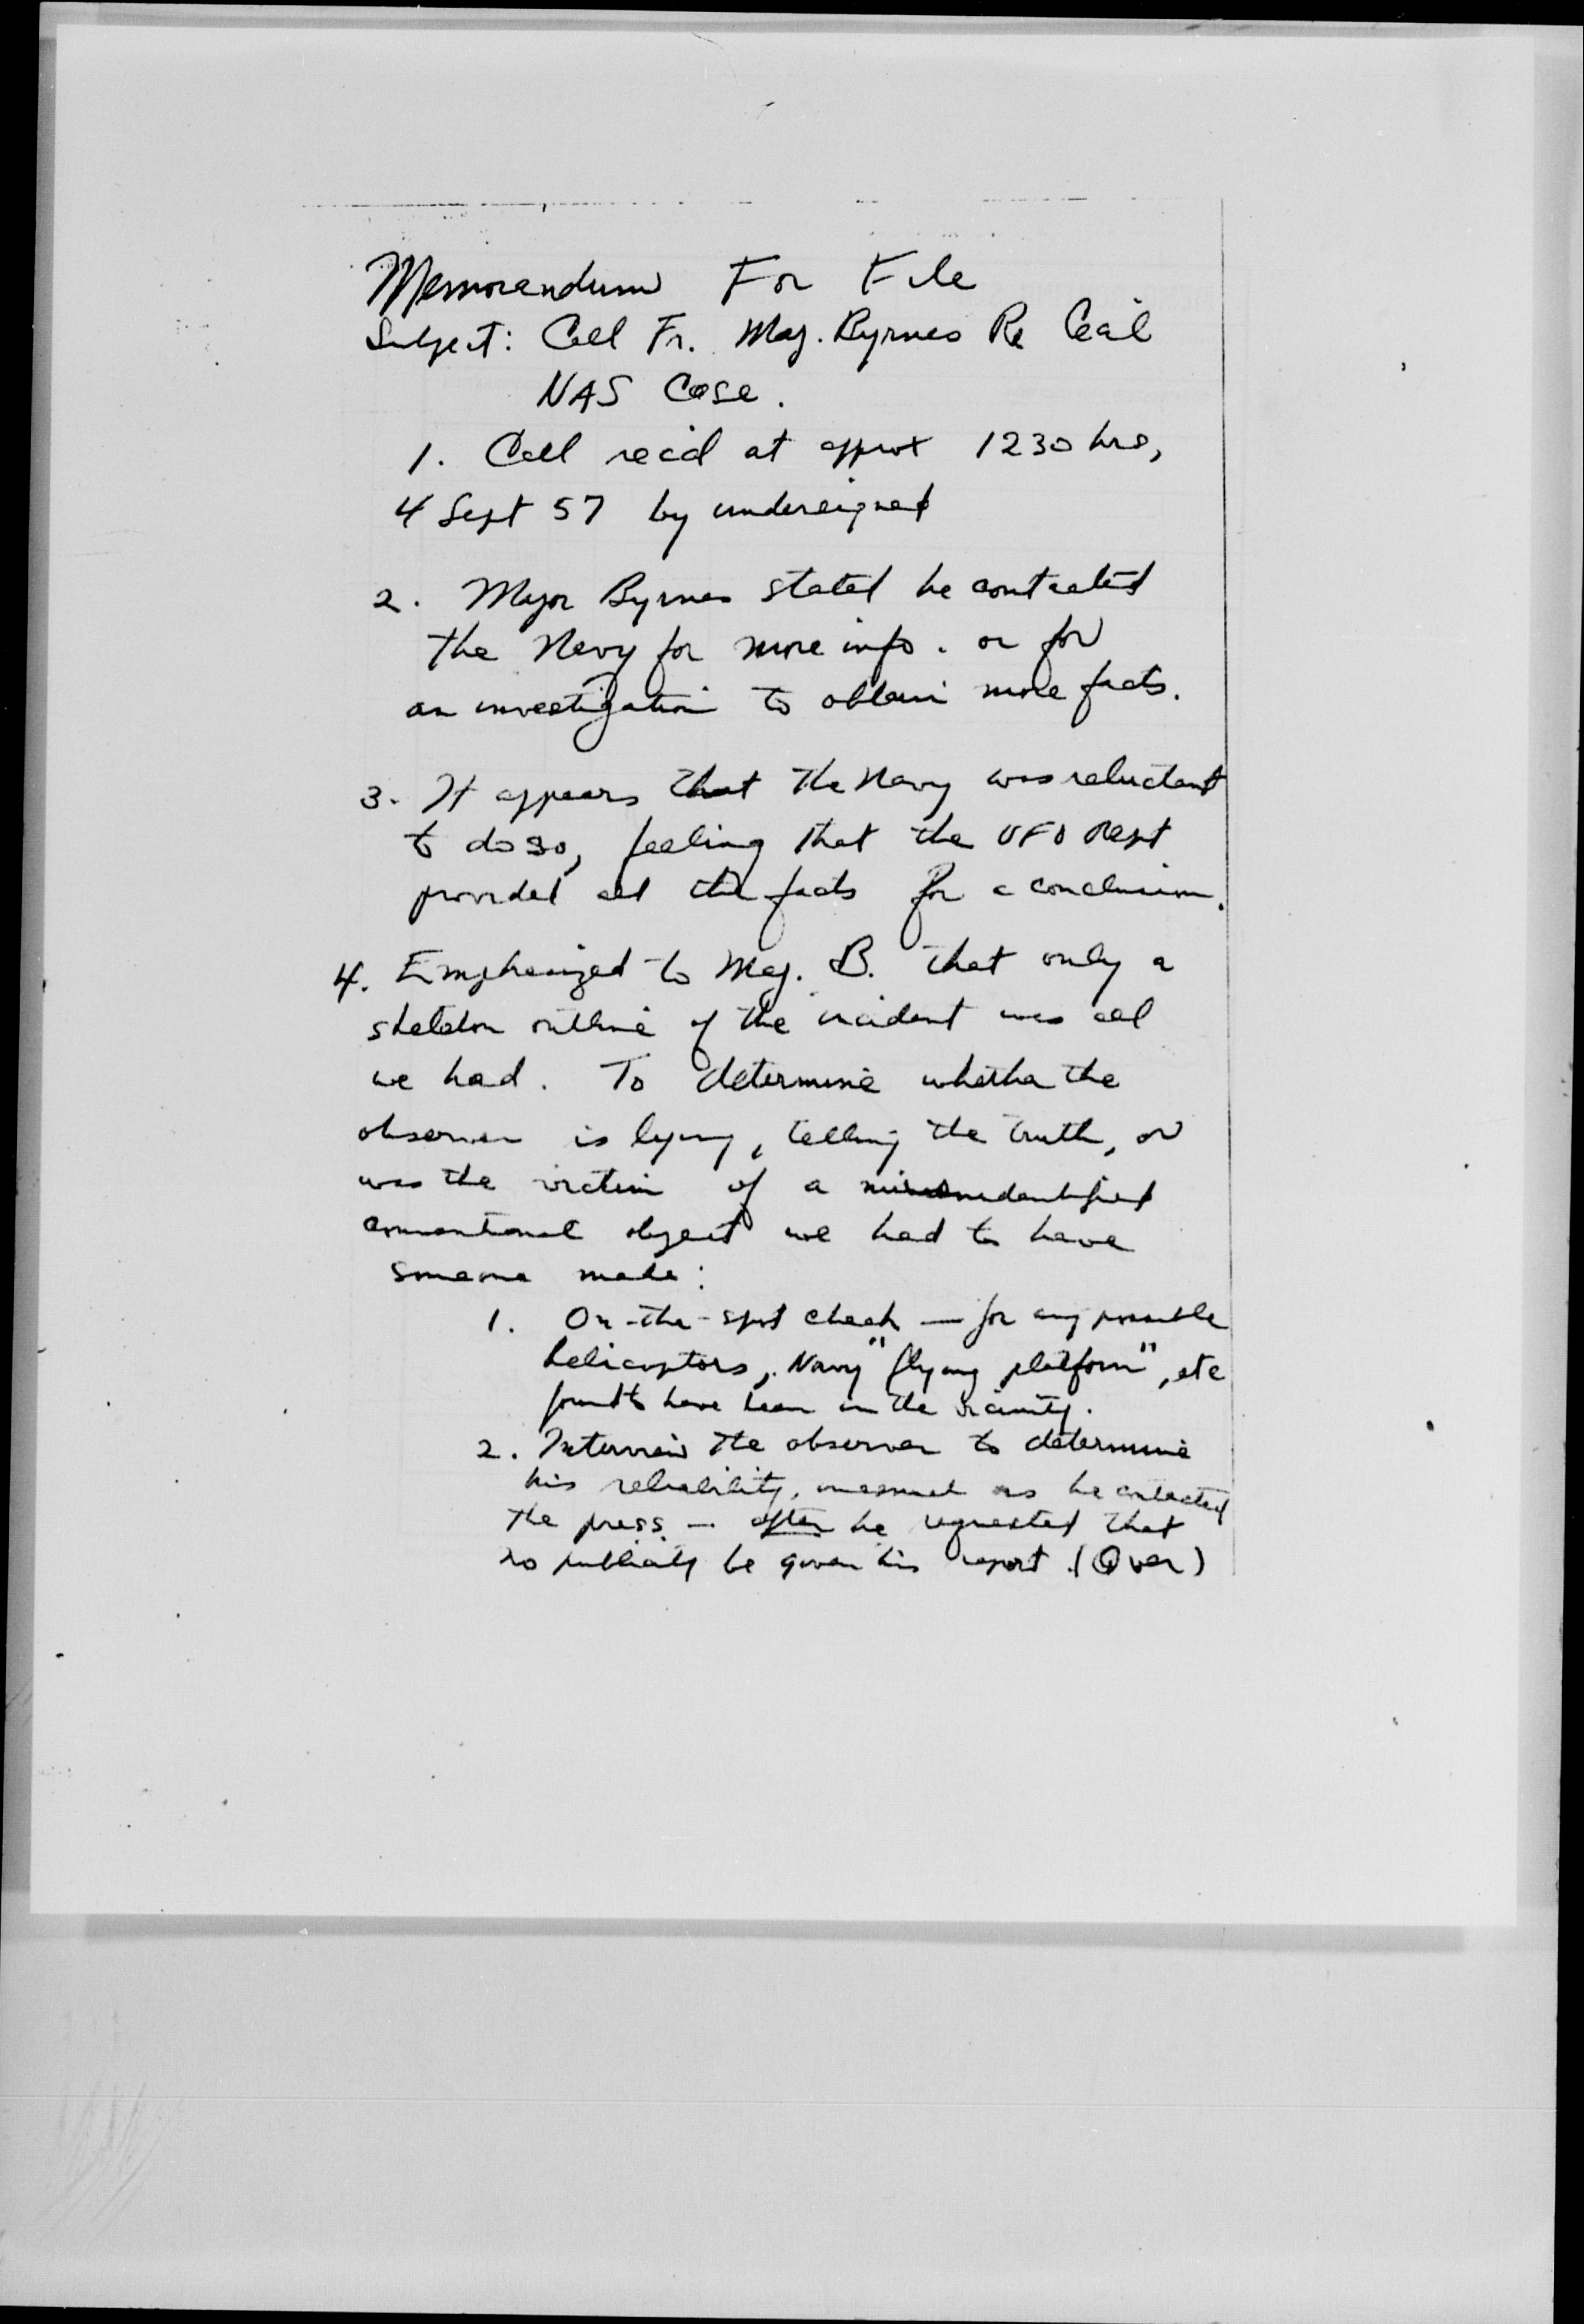 Memorandum For File
Subject: Call Fr. Maj. Byrnes Re Cecil
NAS Case.
1. Call rec'd at approx 1230 hrs,
4 Sept 57 by undersigned
2. Major Byrnes stated he contacted
the Navy for more info. or for
an investigation to obtain more facts.
3. It appears that the Navy was reluctant
to do so, feeling that the UFO Rept
provided all the facts for a conclusion.
4. Emphasized to Maj. B. that only a
skeleton outline of the incident was all
we had. To determine whether the
observer is lying, telling the truth, or
was the victim of a
conventional object we had to have
someone make:
1. On-the-spot check — for any possible
helicoptors, Navy "flying platform", etc
found to have been in the vicinity.
2. Interview the observer to determine
his reliability, inasmuch as he contacted
the press — after he requested that
no publicity be given his report. (Over)